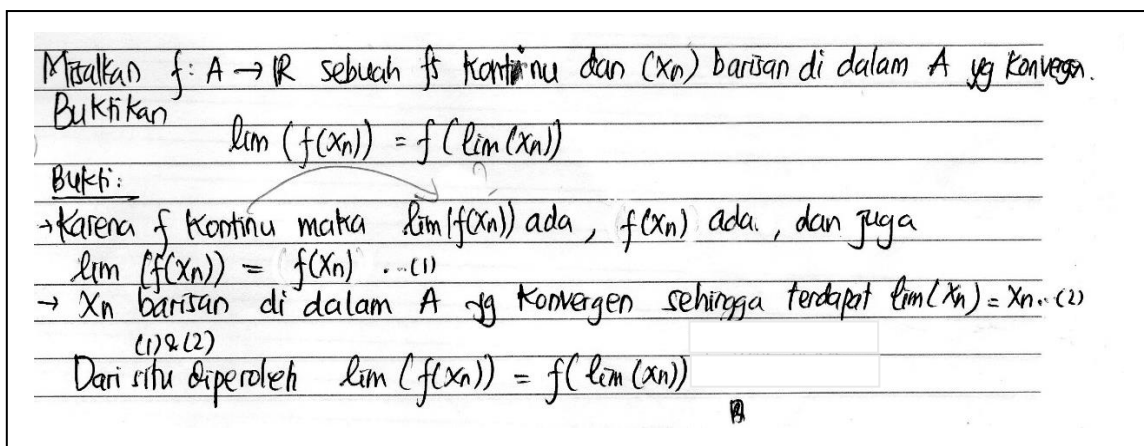 Misalkan f: A → ℝ sebuah fs kontinu dan (xn) barisan di dalam A yg konvergen.
Buktikan
lim (f(xn)) = f(lim(xn))
Bukti:
?
→ Karena f kontinu maka lim(f(xn)) ada, f(xn) ada, dan juga
lim (f(xn)) = f(xn) ...(1)
→ Xn barisan di dalam A yg konvergen sehingga terdapat lim(xn) = xn...(2)
(1)&(2)
Dari situ diperoleh lim (f(xn)) = f(lim (xn))